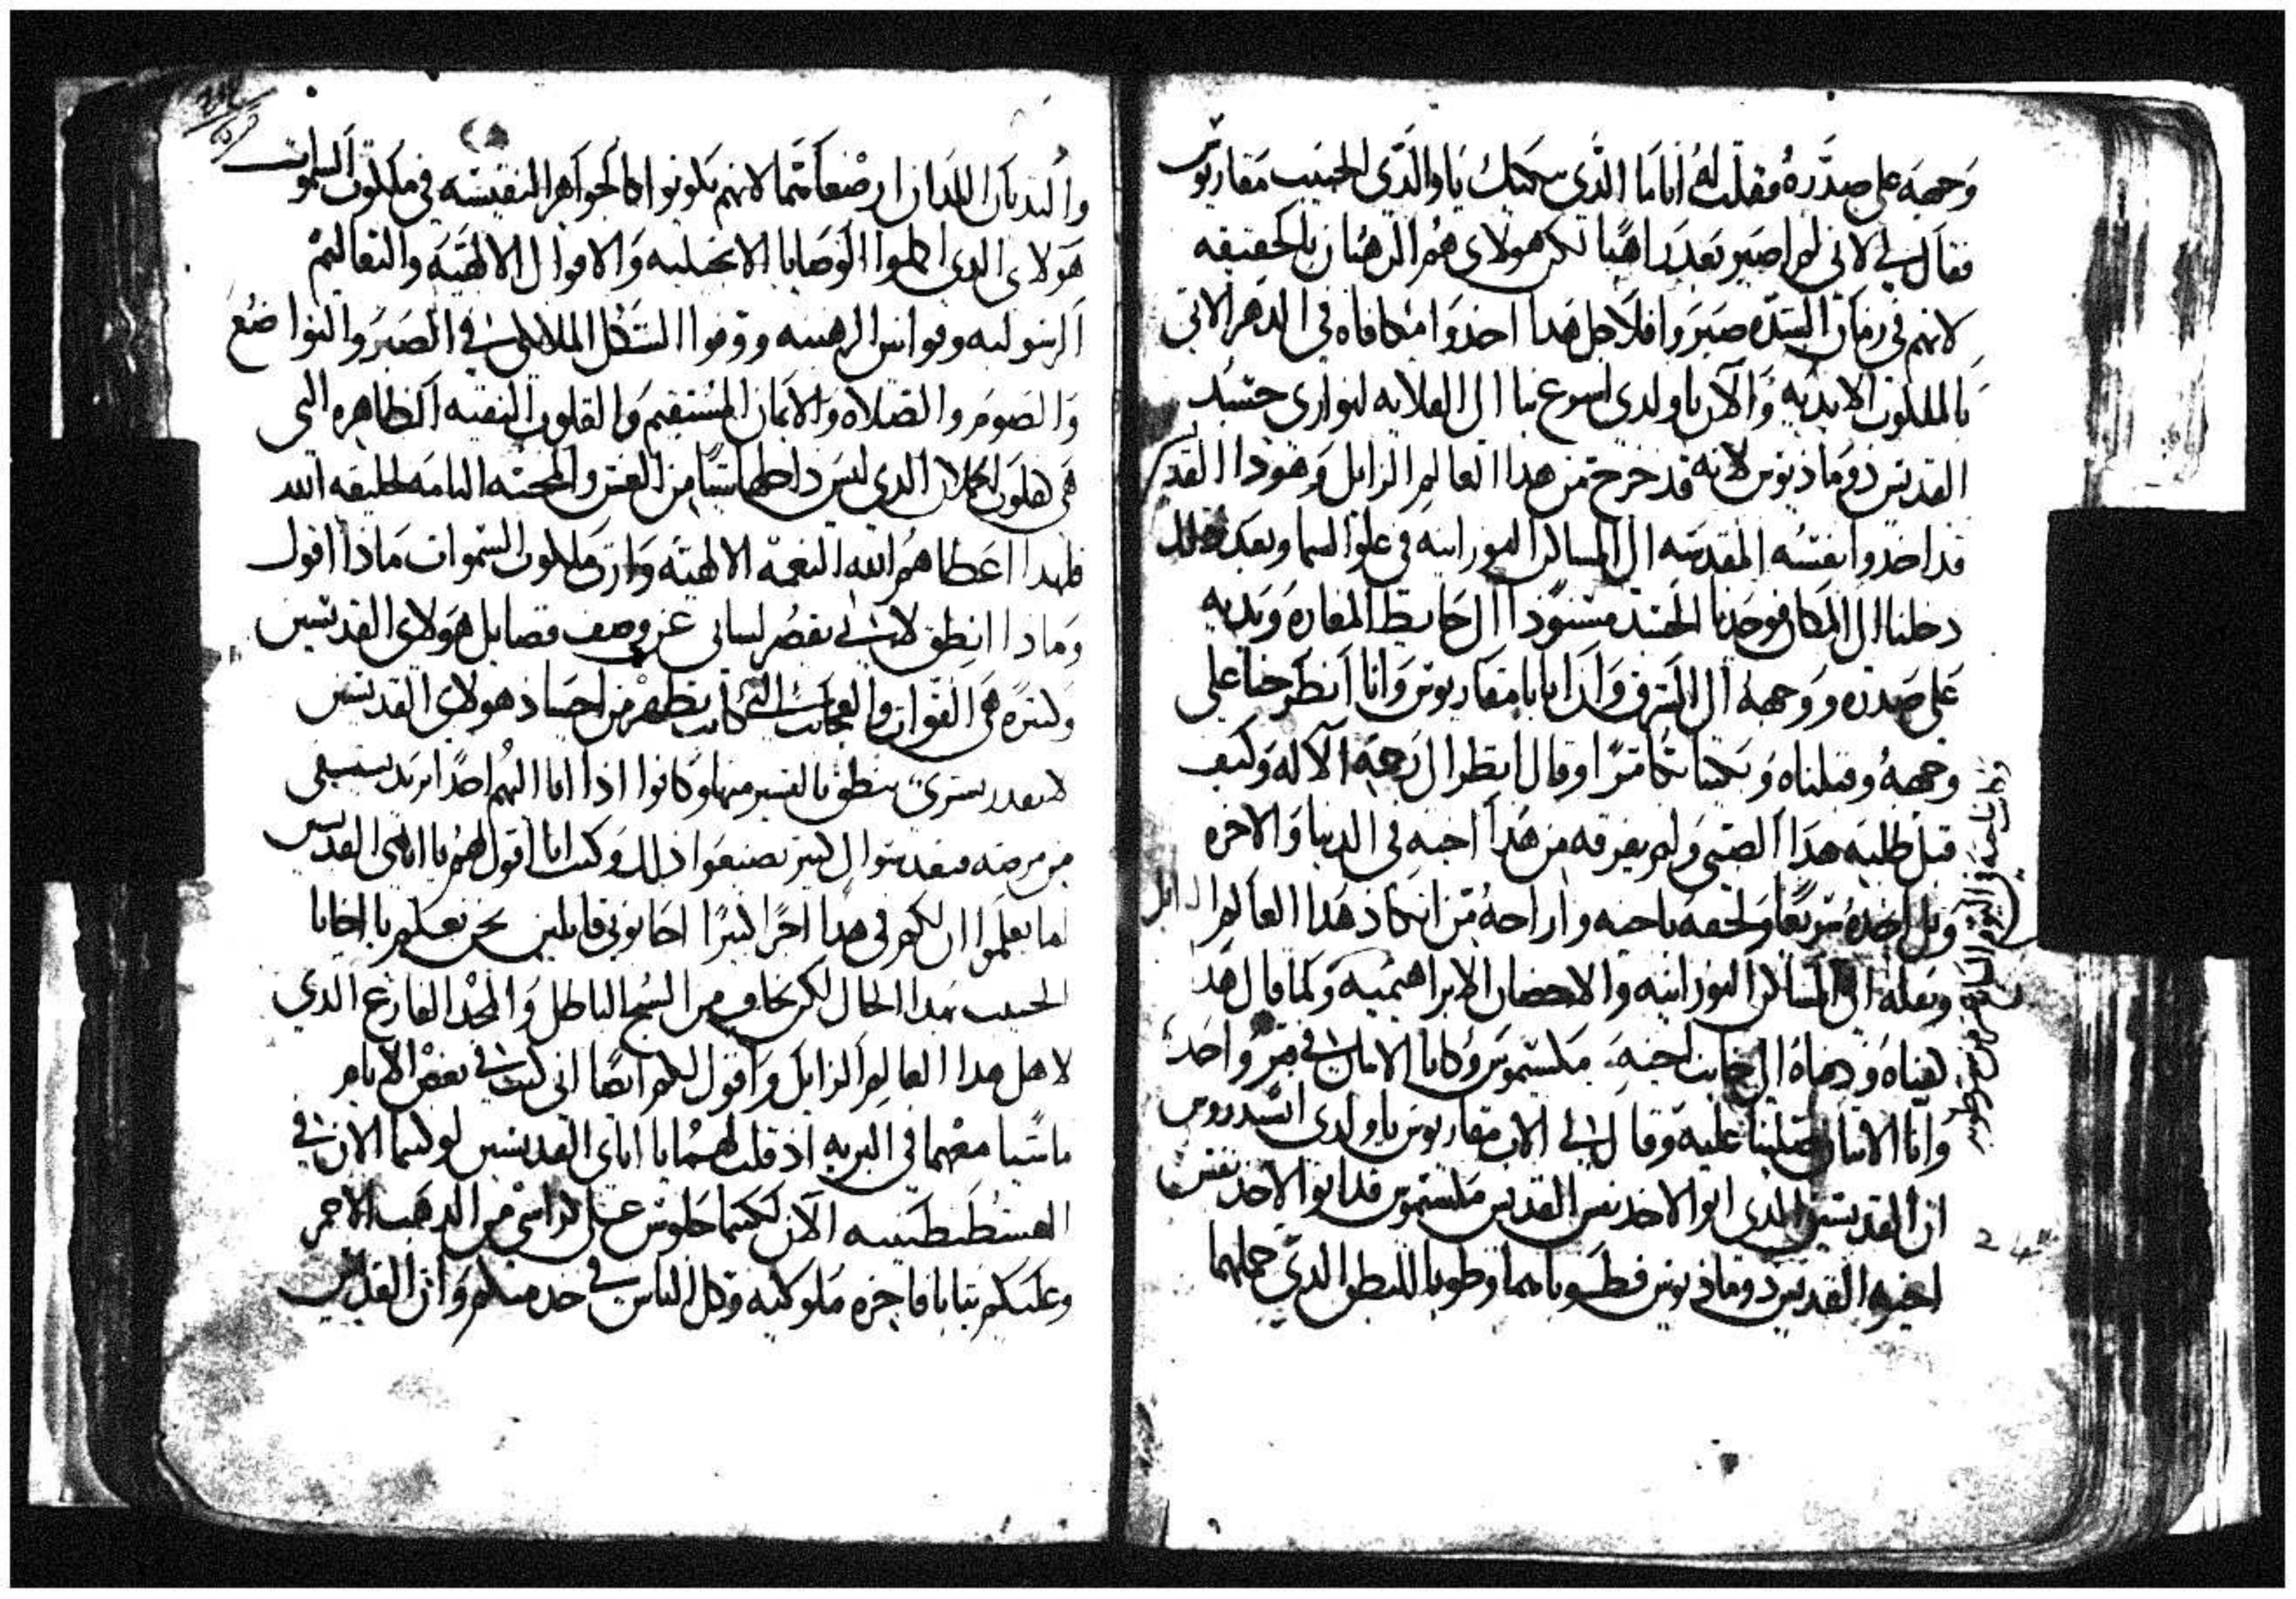 وجهه على صدره فقلت له انا ما الذي يبكيك يا والدي الحبيب مقاريوس
فقال لي لاني لم اصير بعد راهبا لكن هولاي هم الرهبان بالحقيقه
لانهم في زمان الشده صبروا فلاجل هدا اخدوا مكافاه في الدهر الاتي
بالملكوت الابديه والان يا ولدي اسرع بنا الى القلايه لنواري جسد
القديس دوماديوس لانه قد خرج من هدا العالم الزايل وهودا القد
قد اخدوا نفسه المقدسه الى المساكن النورانيه في علو السما وبعد دلك
دخلنا الى المكان فوجدنا الجسد مسنودا الى حايط المغاره ويديه
على صدره ووجهه الى الشرق وان ابا مقاريوس وانا انطرحنا على
وجهه وقبلناه وبكينا بكا مرا وقال انظر الى رحمة الاله وكيف
قبل طلبه هدا الصبي ولم يفرقه من هدا اخيه في الدنيا والاخره
وبل اخده سريعا ولحقه باخيه واراحه من انكاد هدا العالم الزايل
ونقله الى المساكن النورانيه والاحضان الابراهيميه وكما قال هدا
هيناه ودفناه الى جانب اخيه مكسيموس وكانا الاتنان في قبر واحد
وانا الاتنان صلينا عليه وقال لي الاب مقاريوس يا ولدي ايسدروس
ان القديسين الدي اتوا لاخد نفس القديس مكسيموس قد اتوا لاخد نفس
اخيه القديس دوماديوس فطوباهما وطوبا للبطن الدي حملهما
والتديان اللدان ارضعاهما لانهم يكونوا كالجواهر النفيسه في ملكوت السموات
هولاي الدي اكملوا الوصايا الانجيليه والاقوال الالهيه والتعاليم
الرسوليه وقوانين الرهبنه ووفوا الشكل الملايكي في الصبر والتواضع
والصوم والصلاه والايمان المستقيم والقلوب النقيه الطاهره التي
هي قلوب كاملان الدي ليس داخلها شيا من الغش والمحبه التامه لخليقه الله
فلهدا اعطاهم الله النعمه الالهيه وارث ملكوت السموات مادا اقول
ومادا انطق لاني يقصر لساني عن وصف فضايل هولاي القديسين
وكثيره هي القوات والعجايب التي كانت تظهر من اجساد هولاي القديسين
لا يقدر بشري ينطق باليسير منها وكانوا ادا اتا اليهم احدا يريد يستشفي
من مرضه فيقدسوا الى كيير يصنعوا دلك وكنت انا اقول لهم يا اباي القديسين
اما تعلموا ان لكم في هدا اجرا كبيرا اجابوني قايلين نحن نعلم يا اخانا
الحبيب بهدا الحال لكن نخاف من السبح الباطل والمجد الفارغ الدي
لاهل هدا العالم الزايل واقول لكم ايضا اني كنت في بعض الايام
ماشيا معهما في البريه اد قلت لهما يا اباي القديسين لو كنتما الان في
القسطنطينيه الان لكنتما جلوس على كراسي من الدهب الاحمر
وعليكم تيابا فاخره ملوكيه وكل الناس في خدمتكم وان القديس